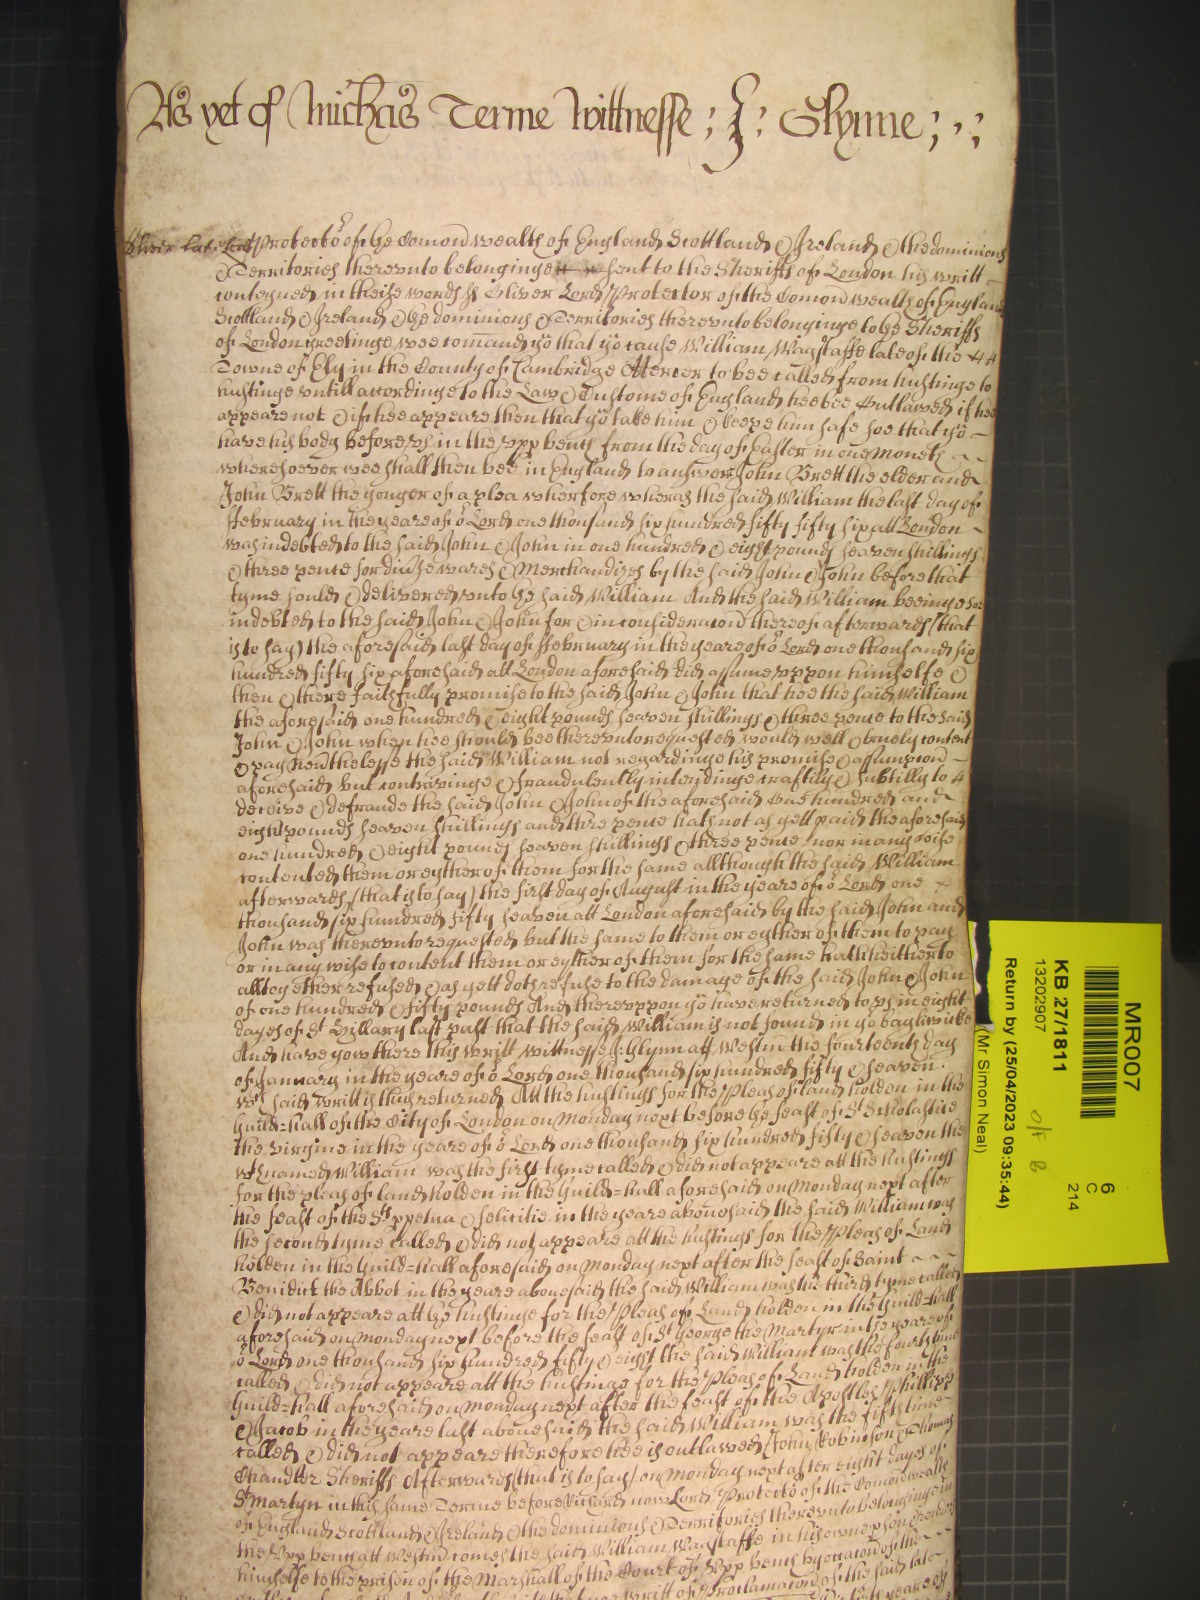 As yet of Michas Terme Wittnesse ; J: Glynne ; , ;
Oliver late Lord Protector of the Comonwealth of England Scottland & Ireland & the dominions
& Territories therevnto belonginge sent to the Sheriffs of London his writt
conteyned in theise words ss Oliver Lord Protector of the Comonwealth of England
Scottland & Ireland & the dominions & Territories therevnto belonginge to the Sheriffs
of London greetinge wee comand yo that yo cause William Wagstaffe late of the
Towne of Ely in the County of Cambridge Mercer to bee called from hustinge to
hustinge vntill accordinge to the Law & Custome of England hee bee Outlawed if hee
appeare not & if hee appeare then that yo take him & keepe him safe soe that yo
have his body before vs in the vpp bench from the day of Easter in one Moneth
wheresoever wee shall then bee in England to answer John Brett the elder and
John Brett the yonger of a plea wherfore wheras the said William the last day of
ffebruary in the yeare of o Lord one thousand six hundred fifty fifty six att London
was indebted to the said John & John in one hundred & eight pounds seaven shillings
& three pence for divse wares & Merchandizes by the said John & John before that
tyme sould & delivered vnto the said William And the said William beeinge soe
indebted to the said John & John for & in consideracon thereof afterwards (that
is to say) the aforesaid last day of ffebruary in the yeare of o Lord one thousand six
hundred fifty six aforesaid att London aforesaid did assume vppon himselfe &
then & there faithfully promise to the said John & John that hee the said William
the aforesaid one hundred & eight pounds seaven shillings & three pence to the said
John & John when hee should bee therevnto requested would well & truely content
& pay Neuthelesse the said William not regardinge his promise & assumpcon
aforesaid but contrivinge & fraudulently intendinge craftily & subtilly to
deceive & defraude the said John & John of the aforesaid One hundred and
eight pounds seaven shillings and thre pence hath not as yett paid the aforesaid
one hundred & eight pounds seaven shillings & three pence nor in any wise
contented them or eyther of them for the same allthough the said William
afterwards (that is to say) the first day of August in the yeare of o Lord one
thousand six hundred fifty seaven att London aforesaid by the said John and
John was therevnto requested but the same to them or eyther of them to pay
or in any wise to content them or eyther of them for the same hath heitherto
alltogether refused & as yett doth refuse to the damage of the said John & John
of one hundred & fifty pounds And therevppon yo have returned to vs in eight
dayes of St Hillary last past that the said William is not found in yo bayliwicke
And have yow there this writt wittnesse J: Glynn att Westm the fourteenth day
of January in the yeare of o Lord one thousand six hundred fifty & seaven.
wch said writt is thus returned Att the hustings for the Pleas of land holden in the
Guild=hall of the City of London on Monday next before the feast of St Scholastice
the virgine in the yeare of o Lord one thousand six hundred fifty & seaven the
wthnamed William was the first tyme called & did not appeare att the hustings
for the pleas of land holden in the Guild=hall aforesaid on Monday next after
the feast of the Sts ppetua & felicitie in the yeare abovesaid the said William was
the second tyme called & did not appeare att the hustings for the Pleas of Land
holden in the Guild=hall aforesaid on Monday next after the feast of Saint
Benidict the Abbot in the yeare abovesaid the said William was the third tyme called
& did not appeare att the hustinge for the Pleas of Land holden in the Guild=hall
aforesaid on Monday next before the feast of St George the Martyr in the yeare of
o Lord one thousand six hundred fifty & eight the said William was the fourth time
called & did not appeare att the hustinge for the Pleas of Land holden in the
Guild=hall aforesaid on Monday next after the feast of the Apostles Phillipp
& Jacob in the yeare last abovesaid the said William was the fifth time
called & did not appeare therefore hee is outlawed John Robinson & Thomas
Chandler Sheriffs Afterwards (that is to say) on Monday next after eight dayes of
St Martyn in this same Terme before Richard now Lord Protector of the Comonwealth
of England Scottland & Ireland & the dominions & Territories therevnto belonginge in
the Vpp bench att Westm comes the said William Wagstaffe in his owne pson
himselfe to the prison of the Marshall of the Court of Vpp bench by occacon of the
writt of Proclamacon of the said late
yeare of
MR007
6
C
214
KB 27/1811
13202907
o/s B
Return by (25/04/2023 09:35:44)
(Mr Simon Neal)